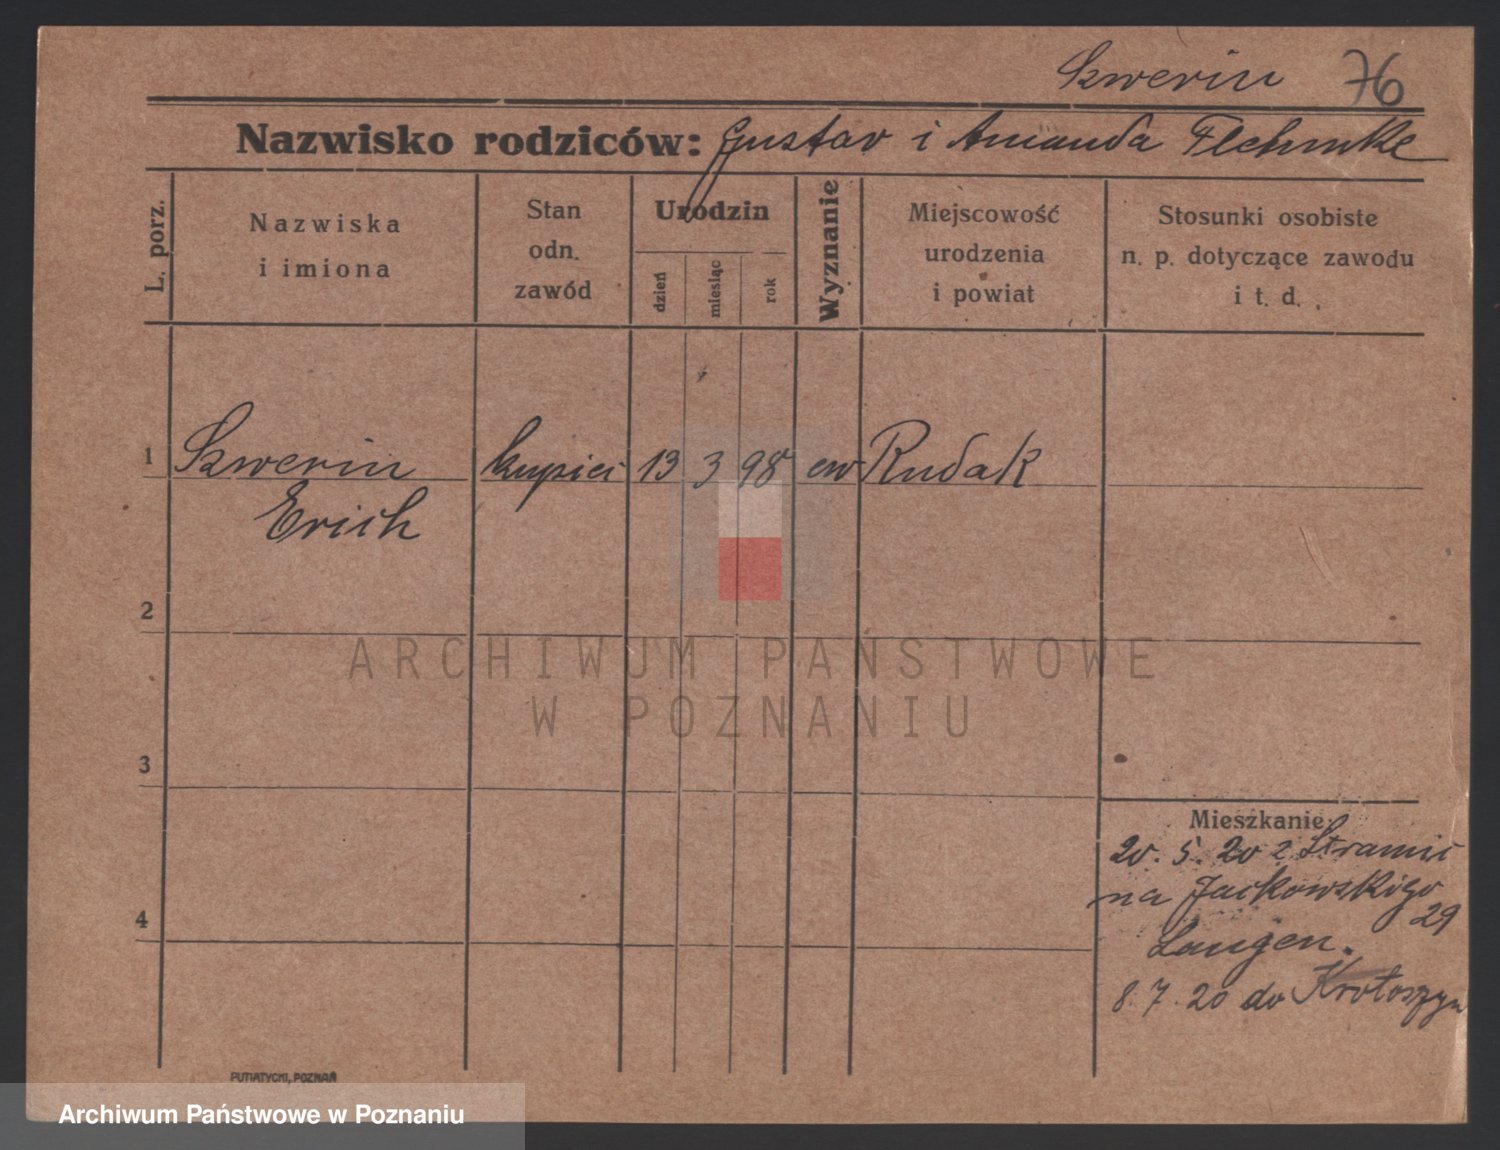 Szwerin 76
Nazwisko rodziców: Gustav i Amanda Flehmke
L. porz.
Nazwiska
i imiona
Stan
odn.
zawód
Urodzin
dzień
miesiąc
rok
Wyznanie
Miejscowość
urodzenia
i powiat
Stosunki osobiste
n. p. dotyczące zawodu
i t. d.
1 Szwerin kupiec 13 3 98 ew Rudak
Erich
2
ARCHIWUM PAŃSTWOWE
W POZNANIU
3
Mieszkanie
20. 5. 20 z
na Jackowskiego
29
Langen.
4
8. 7. 20 do Krotoszyn
PUTIATYCKI, POZNAŃ
Archiwum Państwowe w Poznaniu